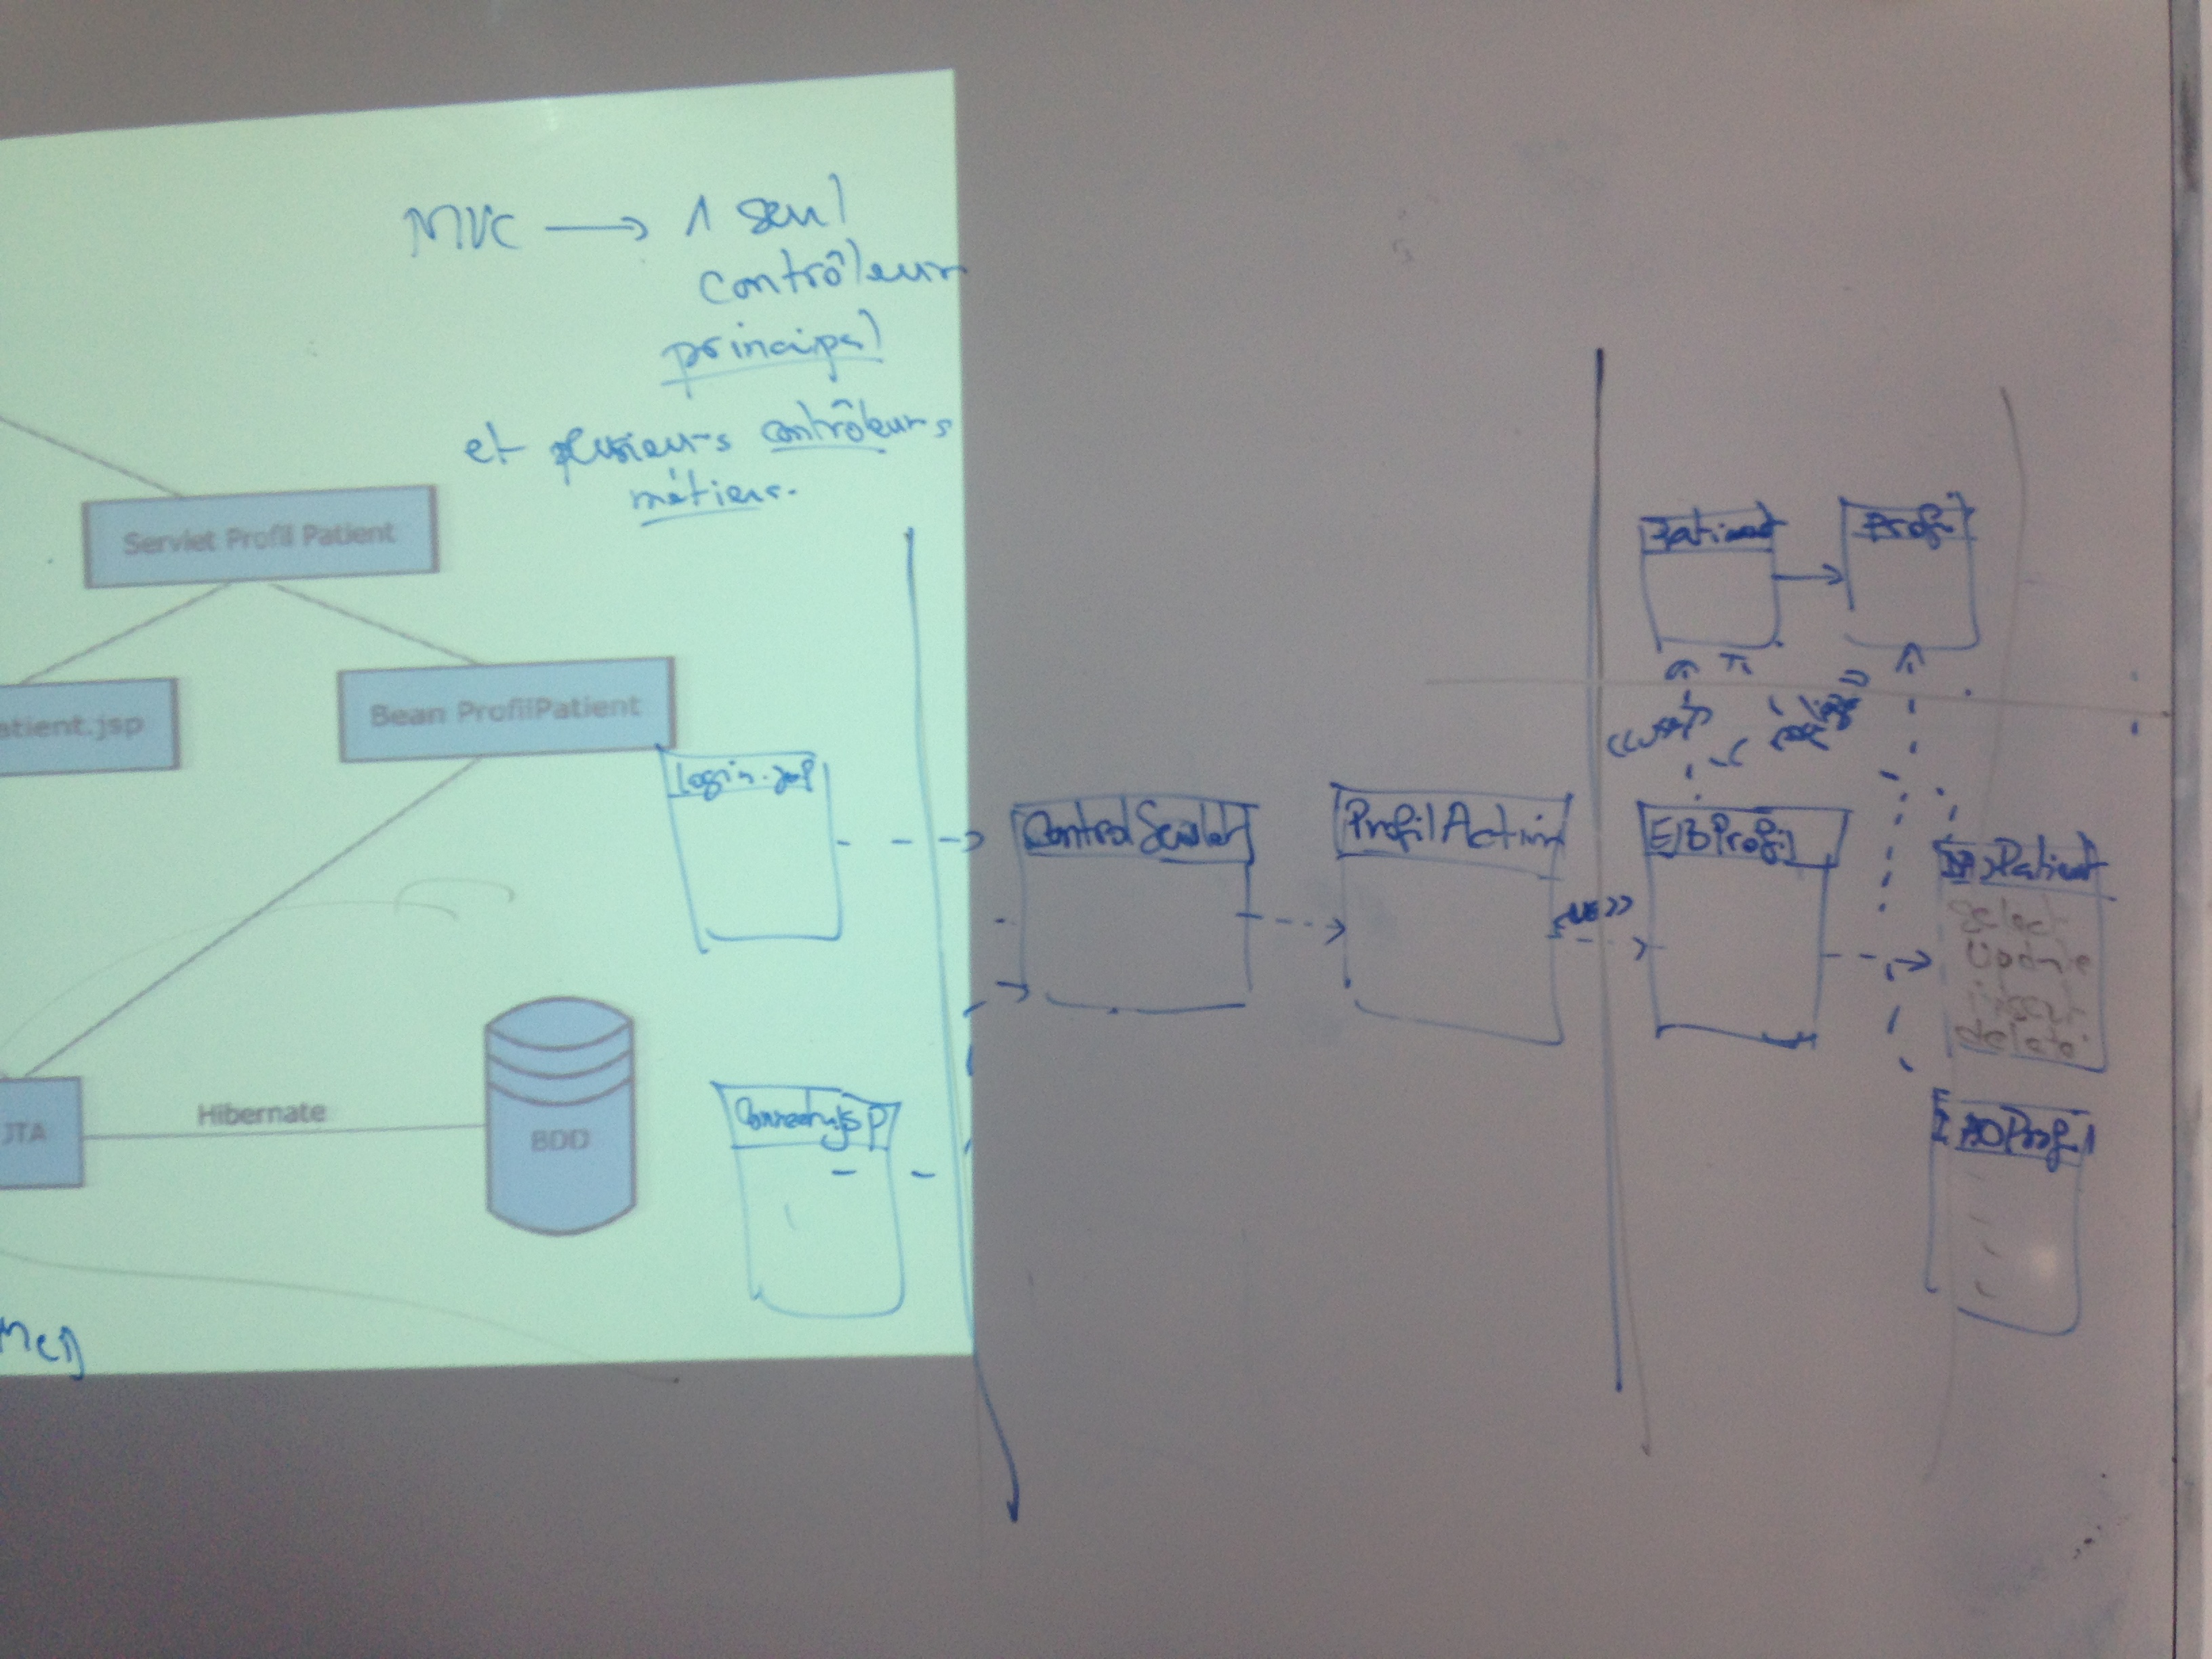 MVC → 1 seul
contrôleur
principal
et plusieurs contrôleurs
métiers.
Servlet Profil Patient
atient.jsp
Bean ProfilPatient
JTA
Hibernate
BDD
login.jsp
ControlServlet
ProfilAction
EJBProfil
Patient
Profil
DAOPatient
Select
Update
insert
delete
DAOProfil